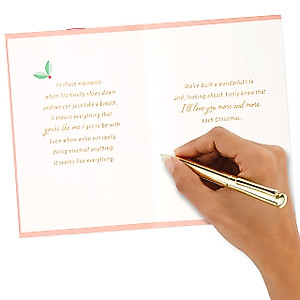 In those moments
when life finally slows down
and we can just take a breath,
it means everything that
you're the one I get to be with.
Even when we're not really
doing much of anything,
it seems like everything.
We've built a wonderful life
and, looking ahead, I only know that
I'll love you more and more
each Christmas.